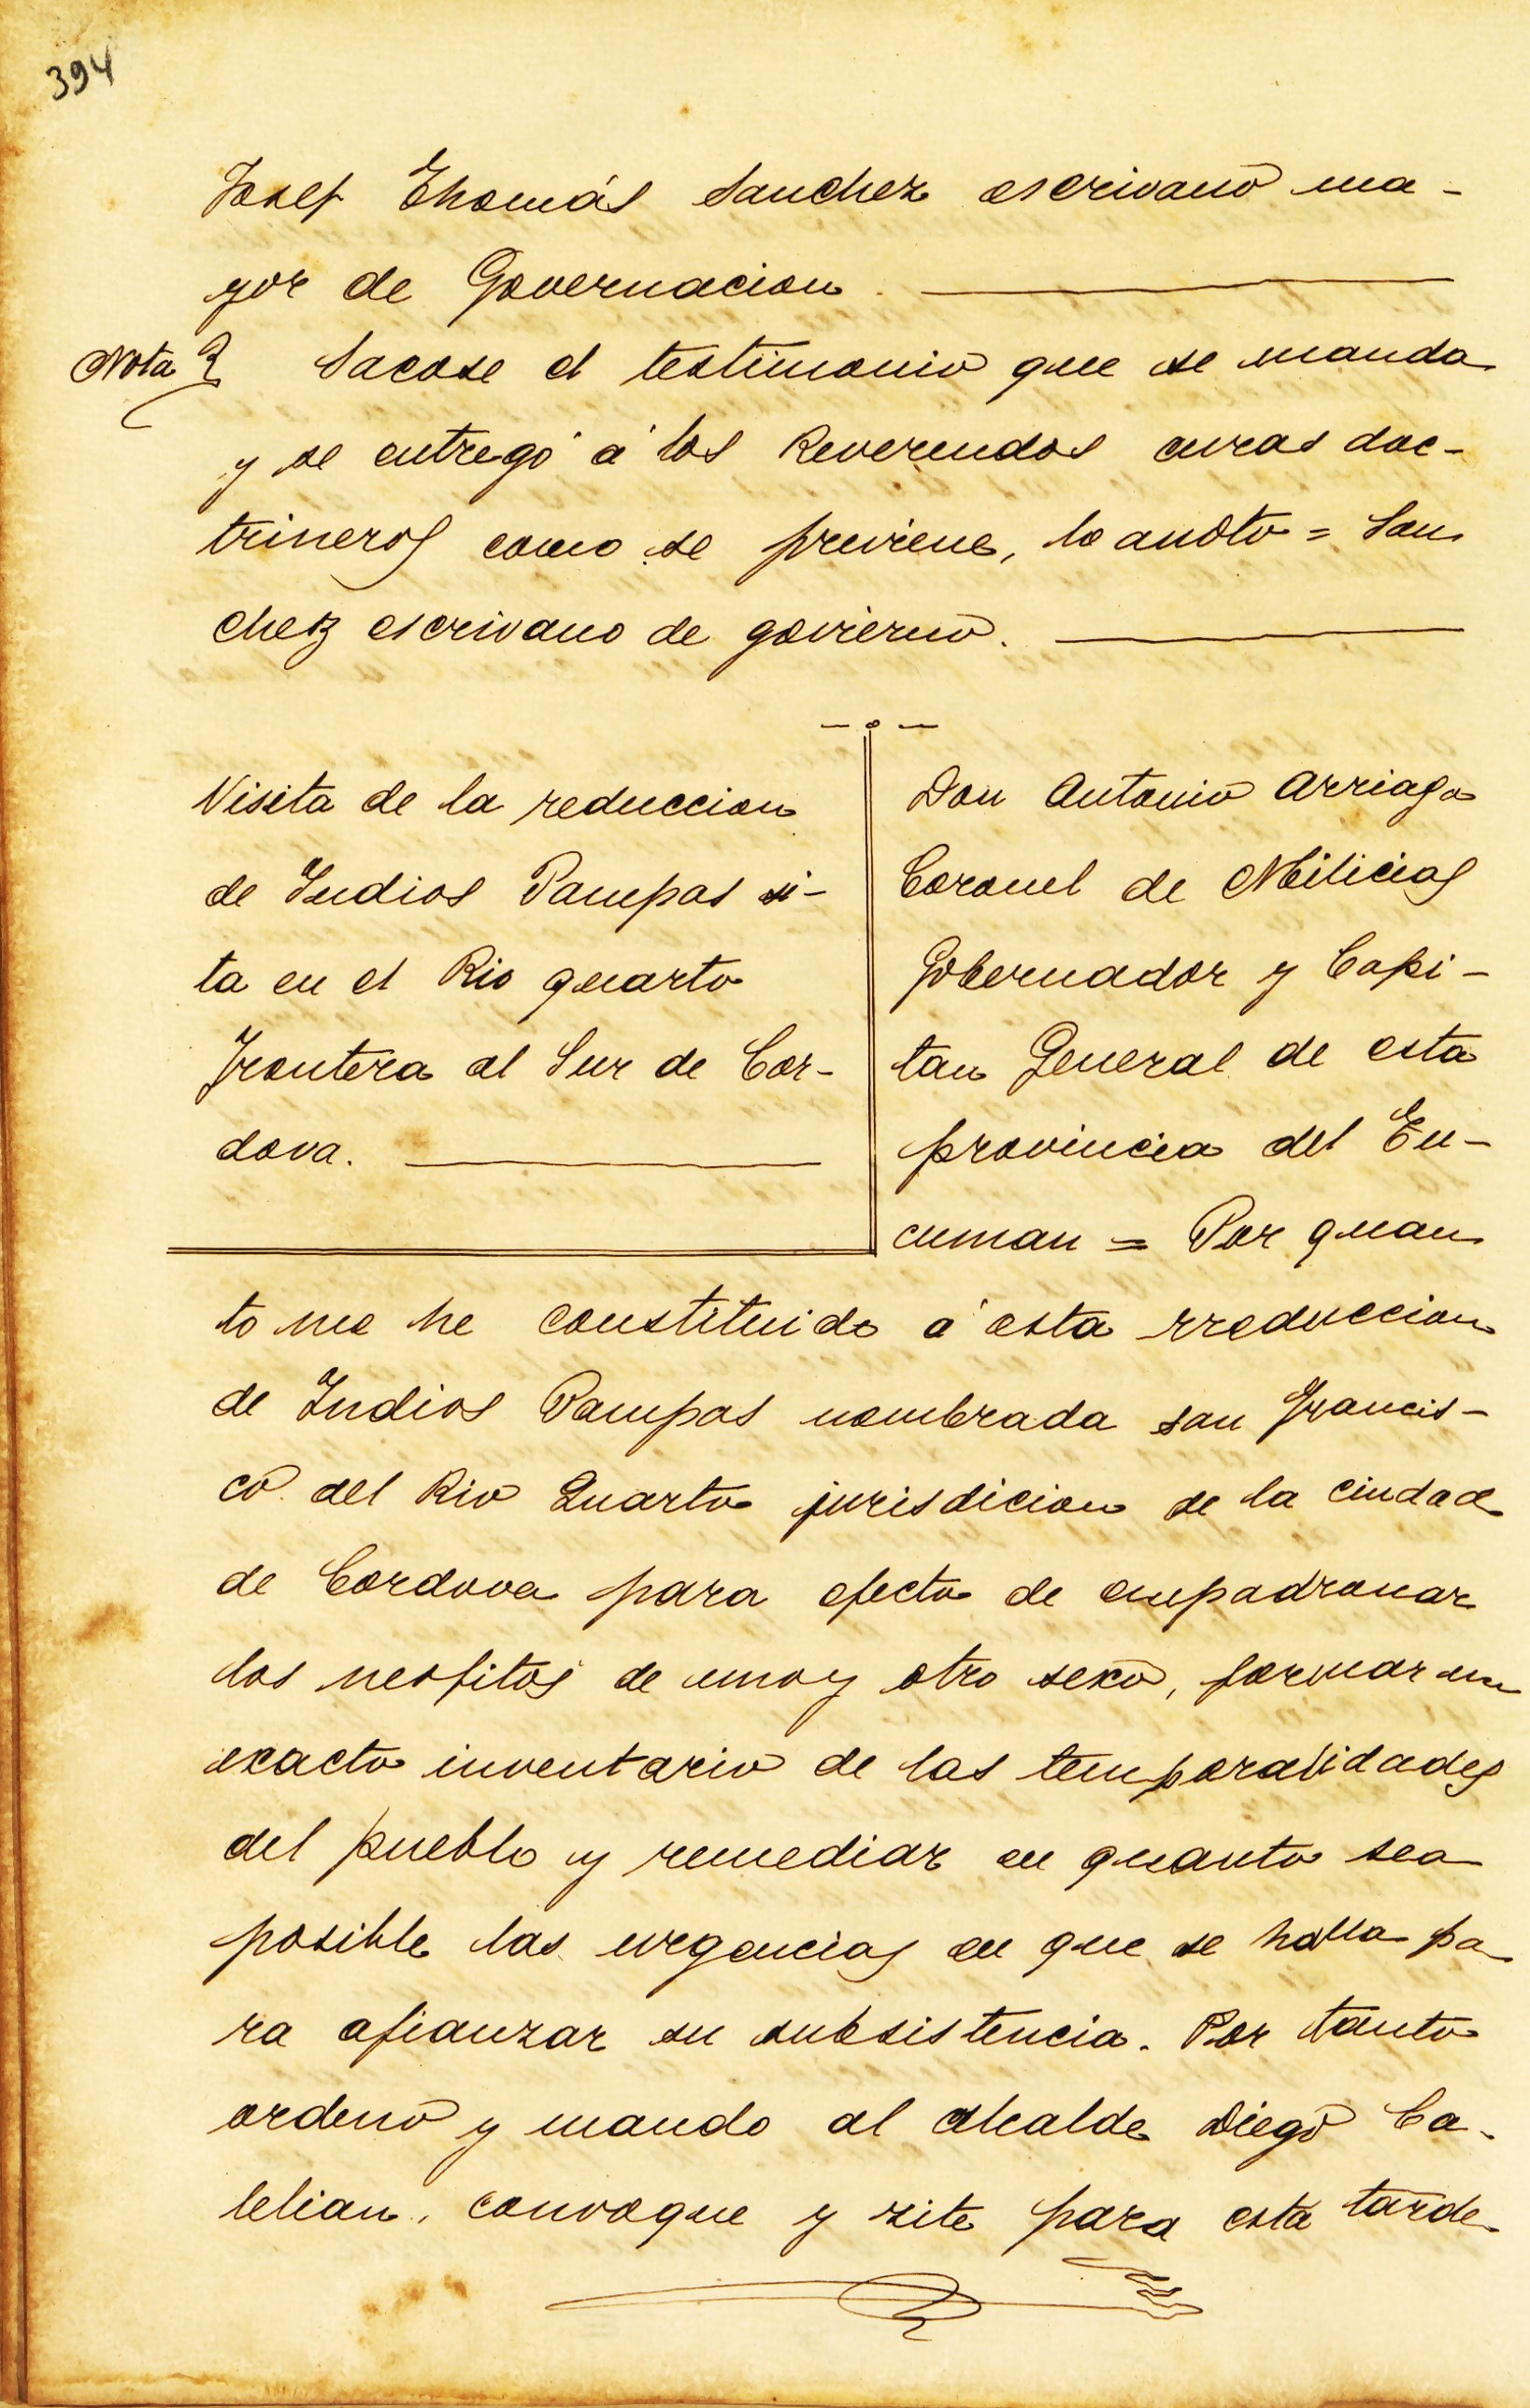 394
Josef Thomás Sanchez escrivano ma-
yor de Governacion.
Nota Sacose el testimonio que se manda
y se entregó á los Reverendos curas doc-
trineros como se previene, lo anoto = San
chez escrivano de govierno.
Visita de la reduccion
de Indios Pampas si-
ta en el Rio quarto
Frontera al Sur de Cor-
dova.
Don Antonio Arriaga
Coronel de Milicias
Gobernador y Capi-
tan General de esta
provincia del Tu-
cuman = Por quan
to me he constituido á esta rreduccion
de Indios Pampas nombrada san Francis-
co del Rio Quarto jurisdicion de la ciudad
de Cordova para efecto de empadronar
los neofitos de uno y otro sexo, formar un
exacto inventario de las temporalidades
del pueblo y remediar en quanto sea
posible las urgencias en que se halla pa
ra afianzar su subsistencia. Por tanto
ordeno y mando al alcalde Diego Ca-
lelian, convoque y zite para esta tarde